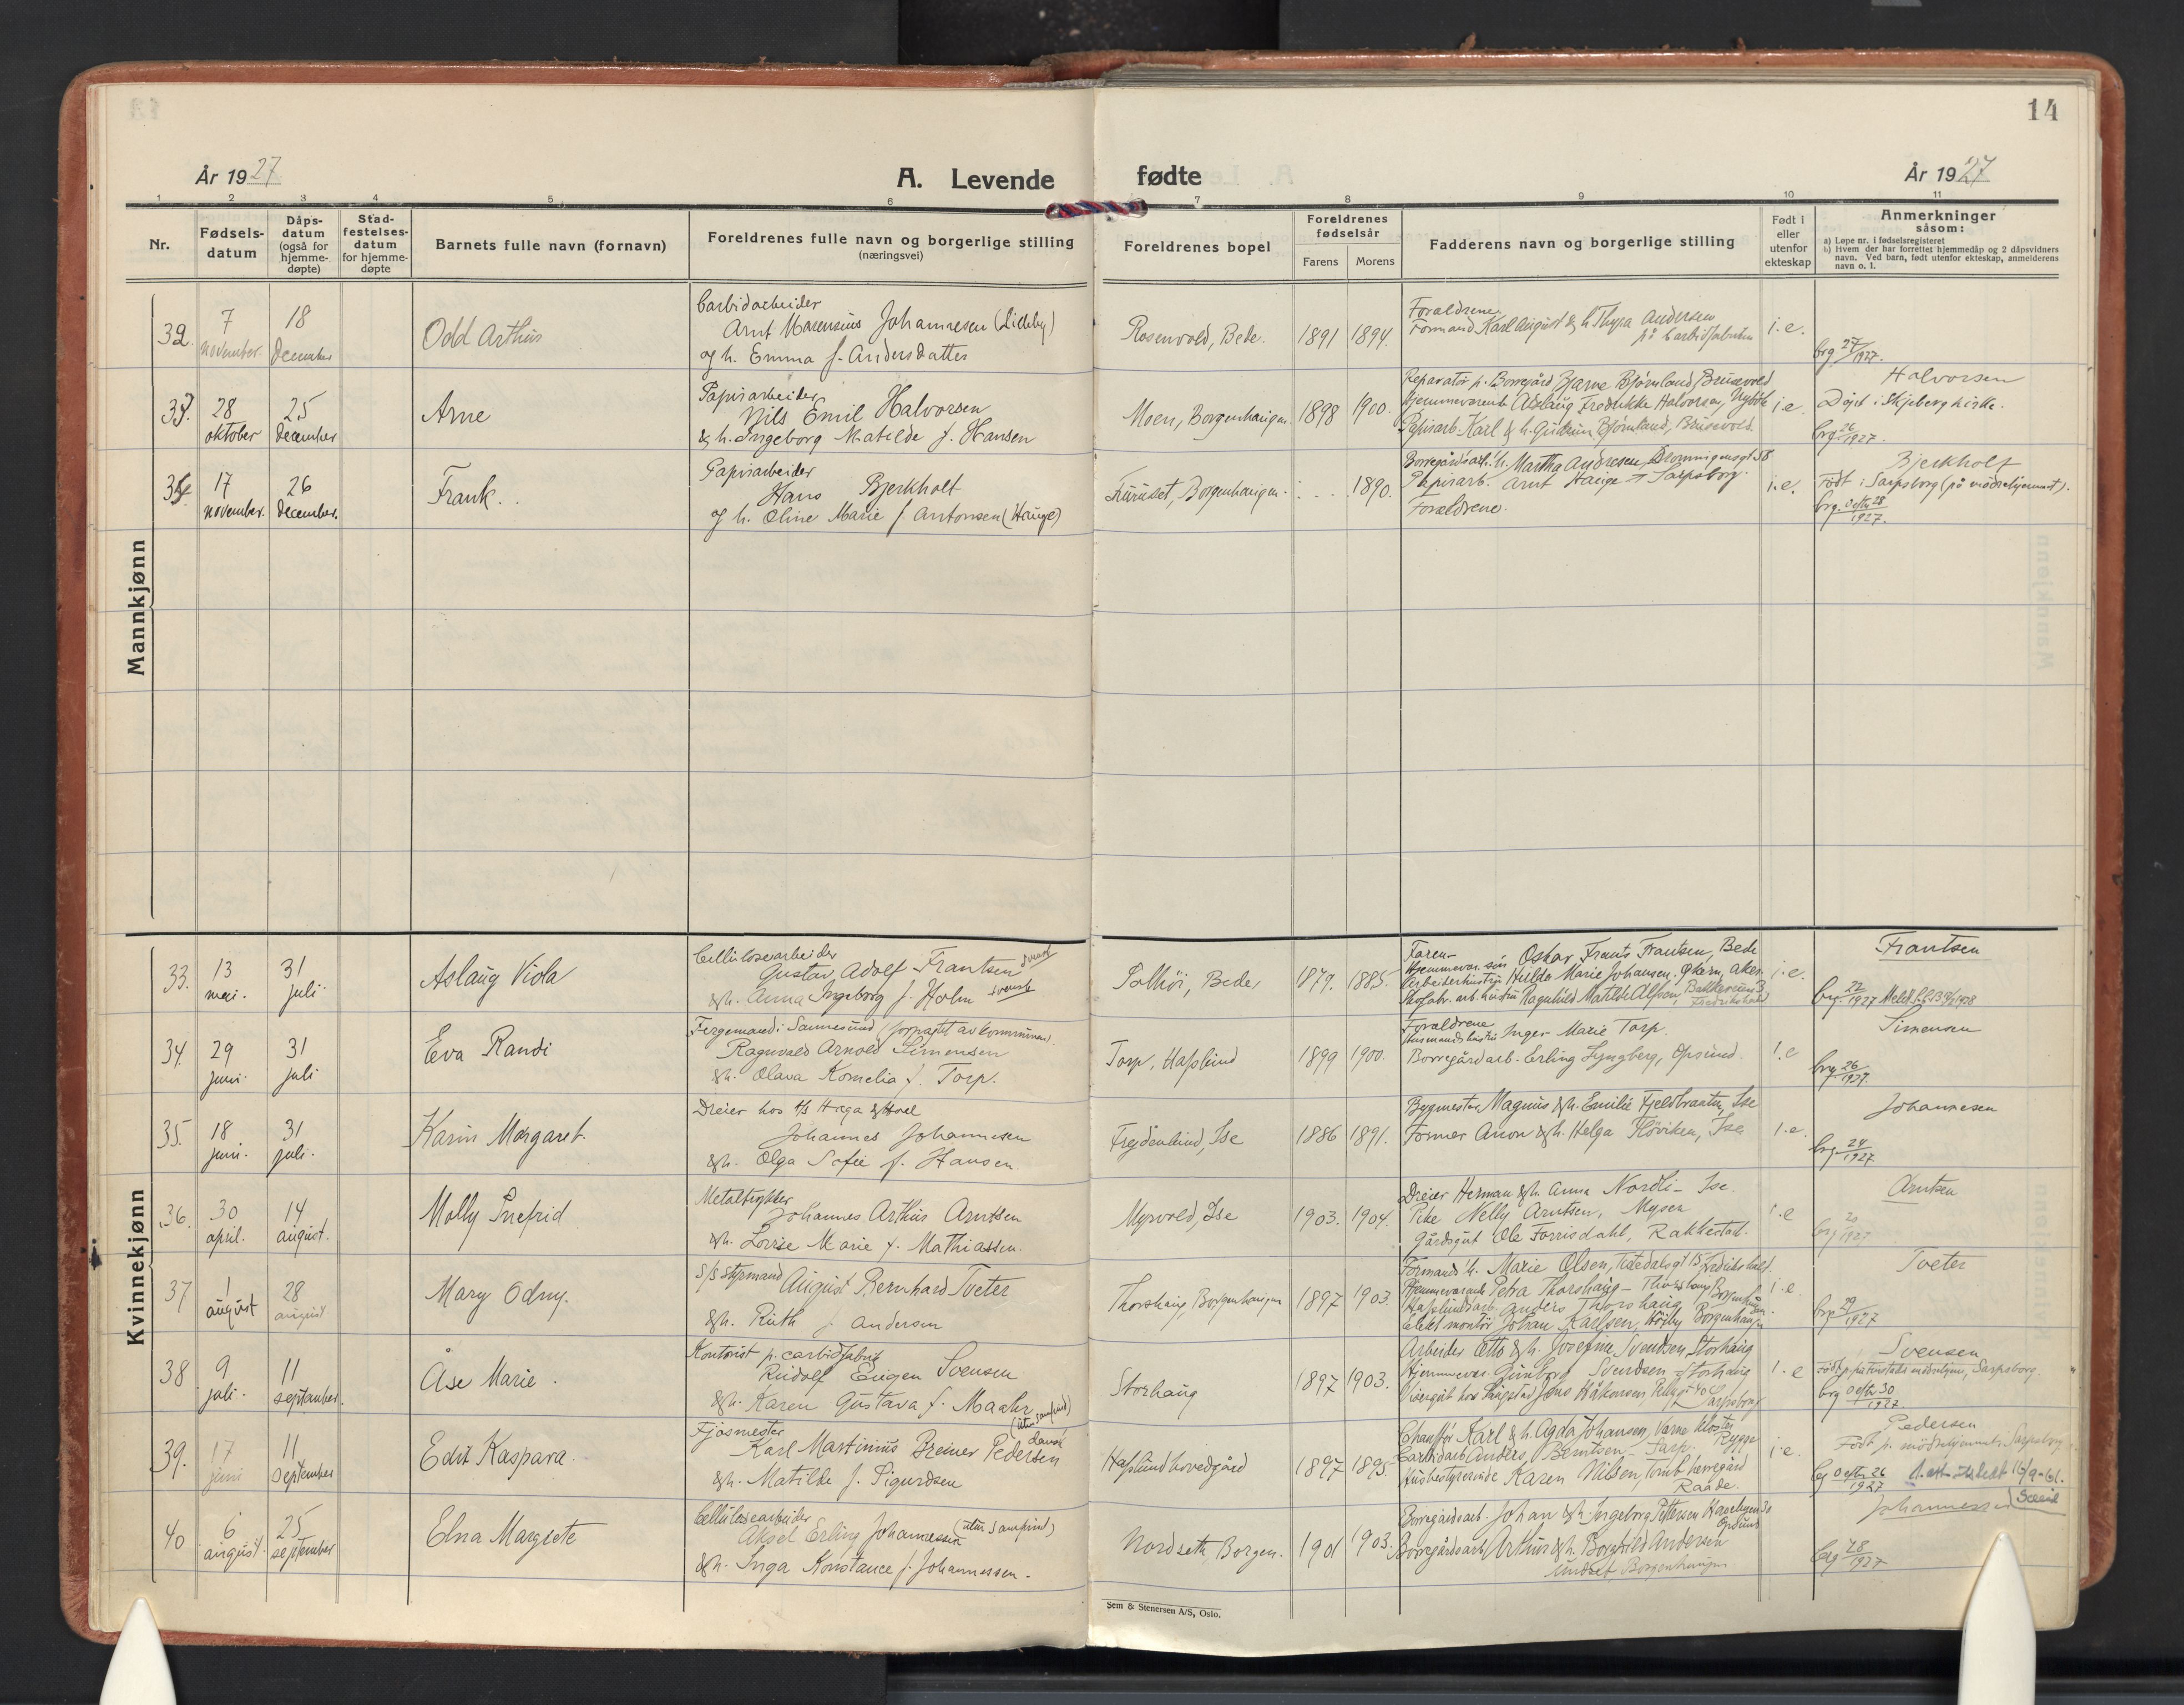 14
År 1927
A. Levende fødte
År 1927
1 2 3 4 5 6 7 8 9 10 11
Nr.
Fødsels-
datum
Dåps-
datum
(også for
hjemme-
døpte)
Stad-
festelses-
datum
for hjemme-
døpte
Barnets fulle navn (fornavn)
Foreldrenes fulle navn og borgerlige stilling
(næringsvei)
Foreldrenes bopel
Foreldrenes
fødselsår
Farens Morens
Fadderens navn og borgerlige stilling
Født i
eller
utenfor
ekteskap
Anmerkninger
såsom:
a) Løpe nr. i fødselsregisteret
b) Hvem der har forrettet hjemmedåp og 2 dåpsvidners
navn. Ved barn, født utenfor ekteskap, anmelderens
navn o. l.
Mannkjønn
32.
7
november.
18
december
Odd Arthur
Carbidarbeider
Arnt Marensius Johannesen (Lilleby)
og h. Emma f. Andersdatter
Rosenvold, Bede.
1891 1894.
Foreldrene
Formand Karl August & h. Thyra Andersen
på Carbidfabriken
i.e.
brg. 27/1927.
33.
28
oktober
25
december
Arne
Papirarbeider
Nils Emil Halvorsen
& h. Ingeborg Matilde f. Hansen
Moen, Borgenhaugen.
1898 1900.
Reparatør p. Borregård Bjarne Bjørnland, Brusevold
Hjemmeværende Aslaug Fredrikke Halvorsen,
Papirarb. Karl & h. Gudrun Bjørnland, Brusevold.
i.e.
Halvorsen
Døpt i Skjeberg kirke.
brg. 26/1927.
34.
17
november.
26
december.
Frank.
Papirarbeider
Hans Bjerkholt
og h. Oline Marie f. Antonsen (Hauge)
Furuset, Borgenhaugen.
1890.
Borregårdsarb. h. Martha Andresen, Dronningensgt 58
Papirarb. Arnt Hauge Sarpsborg.
Foreldrene.
i.e.
Bjerkholt
Født i Sarpsborg (på mødrehjemmet).
brg. 28
1927.
Kvinnekjønn
33.
13
mai.
31
juli
Aslaug Viola
Cellulosearbeider
Gustav Adolf Frantsen svensk
& h. Anna Ingeborg f. Holm svensk
Solhöi, Bede
1879. 1885.
Faren
Hjemmevær. søn Oskar Frants Frantsen, Bede
Arbeiderhustru Hulda Marie Johansen, Aker.
arb. hustru Ragnhild Matilde Alfsen,
Fredrikshald
i.e.
Frantsen
brg. 22/1927
34.
29
juni.
31
juli
Eva Randi
Fergemand i Sannesund (forpagtet av kommunen).
Ragnvald Arnold Simensen
& h. Olava Kornelia f. Torp.
Torp, Hafslund
1899 1900.
Foreldrene
Husmandshustru Inger Marie Torp.
Borregårdarb. Erling Lyngberg, Opsund.
i.e
Simensen
brg. 26/1927.
35.
18
juni.
31
juli.
Karin Margaret.
Dreier hos A/S Haga & Hoel
Johannes Johannesen
& h. Olga Sofie f. Hansen.
Frydenlund, Ise
1886 1891.
Bygmester Magnus & h. Emilie Fjeldbraaten, Ise
Former Anon & h. Helga Höviken, Ise
i.e.
Johannesen
brg. 24/1927
36.
30
april.
14
august.
Molly Snefrid
Metaltrykker
Johannes Arthur Arntsen
& h. Lovise Marie f. Mathiassen.
Myrvold, Ise
1903. 1904.
Dreier Herman & h. Anna Nordli – Ise.
Pike Nelly Arntsen, Mysen
Gårdsgut Ole Forrisdahl, Rakkestad.
i.e
Arntsen
brg. 20/1927
37
1
august
28
august
Mary Odny.
S/S styrmand August Bernhard Tveter
& h. Ruth f. Andersen
Thorshaug, Borgenhaugen
1897 1903
Formands h. Marie Olsen, Tistedalsgt 15 Fredrikshald.
Hjemmeværende Petra Thorshaug – Thorshaug Borgenhaugen.
Hafslundsarb. Anders Thorshaug
Elekt. montör Johan Karlsen, Höiby Borgenhaugen
i.e.
Tveter
brg. 29/1927
38
9
juli.
11
september.
Åse Marie.
Kontorist p. carbidfabrik
Rudolf Eugen Svensen
& h. Karen Gustava f. Maahr
(uten samfund)
Storhaug
1897 1903.
Arbeider Otto & h. Josefine Svendsen, Storhaug
Hjemmevær. Gunborg Svendsen Storhaug
Visergut hos Jens Håkonsen, Sarpsborg
i.e
Svensen
brg 30
1927
39.
17
juni
11
september
Edit Kaspara.
Fjøsmester
Karl Martinius Breiner Pedersen dansk
& h. Matilde f. Sigurdsen
Hafslund hovedgård
1897 1895.
Chauffør Karl & h. Agda Johansen, Varne kloster Rygge
Carbidarb. Anders Berntsen – Sarp.
Husbestyrerinde Karen Nilsen, Tomb herregård
Raade.
i.e.
Pedersen
Født p. mødrehjemmet, Sarpsborg
26
1927
40
6
august.
25
september
Elna Margrete
Cellulosearbeider
Aksel Erling Johannessen (uten samfund)
& h. Inga Konstance f. Johannessen.
Nordseth Borgen.
1901 1903.
Borregårdsarb. Johan & h. Ingeborg Pettersen
Opsund
Borregårdsarb. Arthur & h. Borghild Andersen
Borgenhaugen
Johannessen
brg. 28/1927
Sem & Stenersen A/S, Oslo.